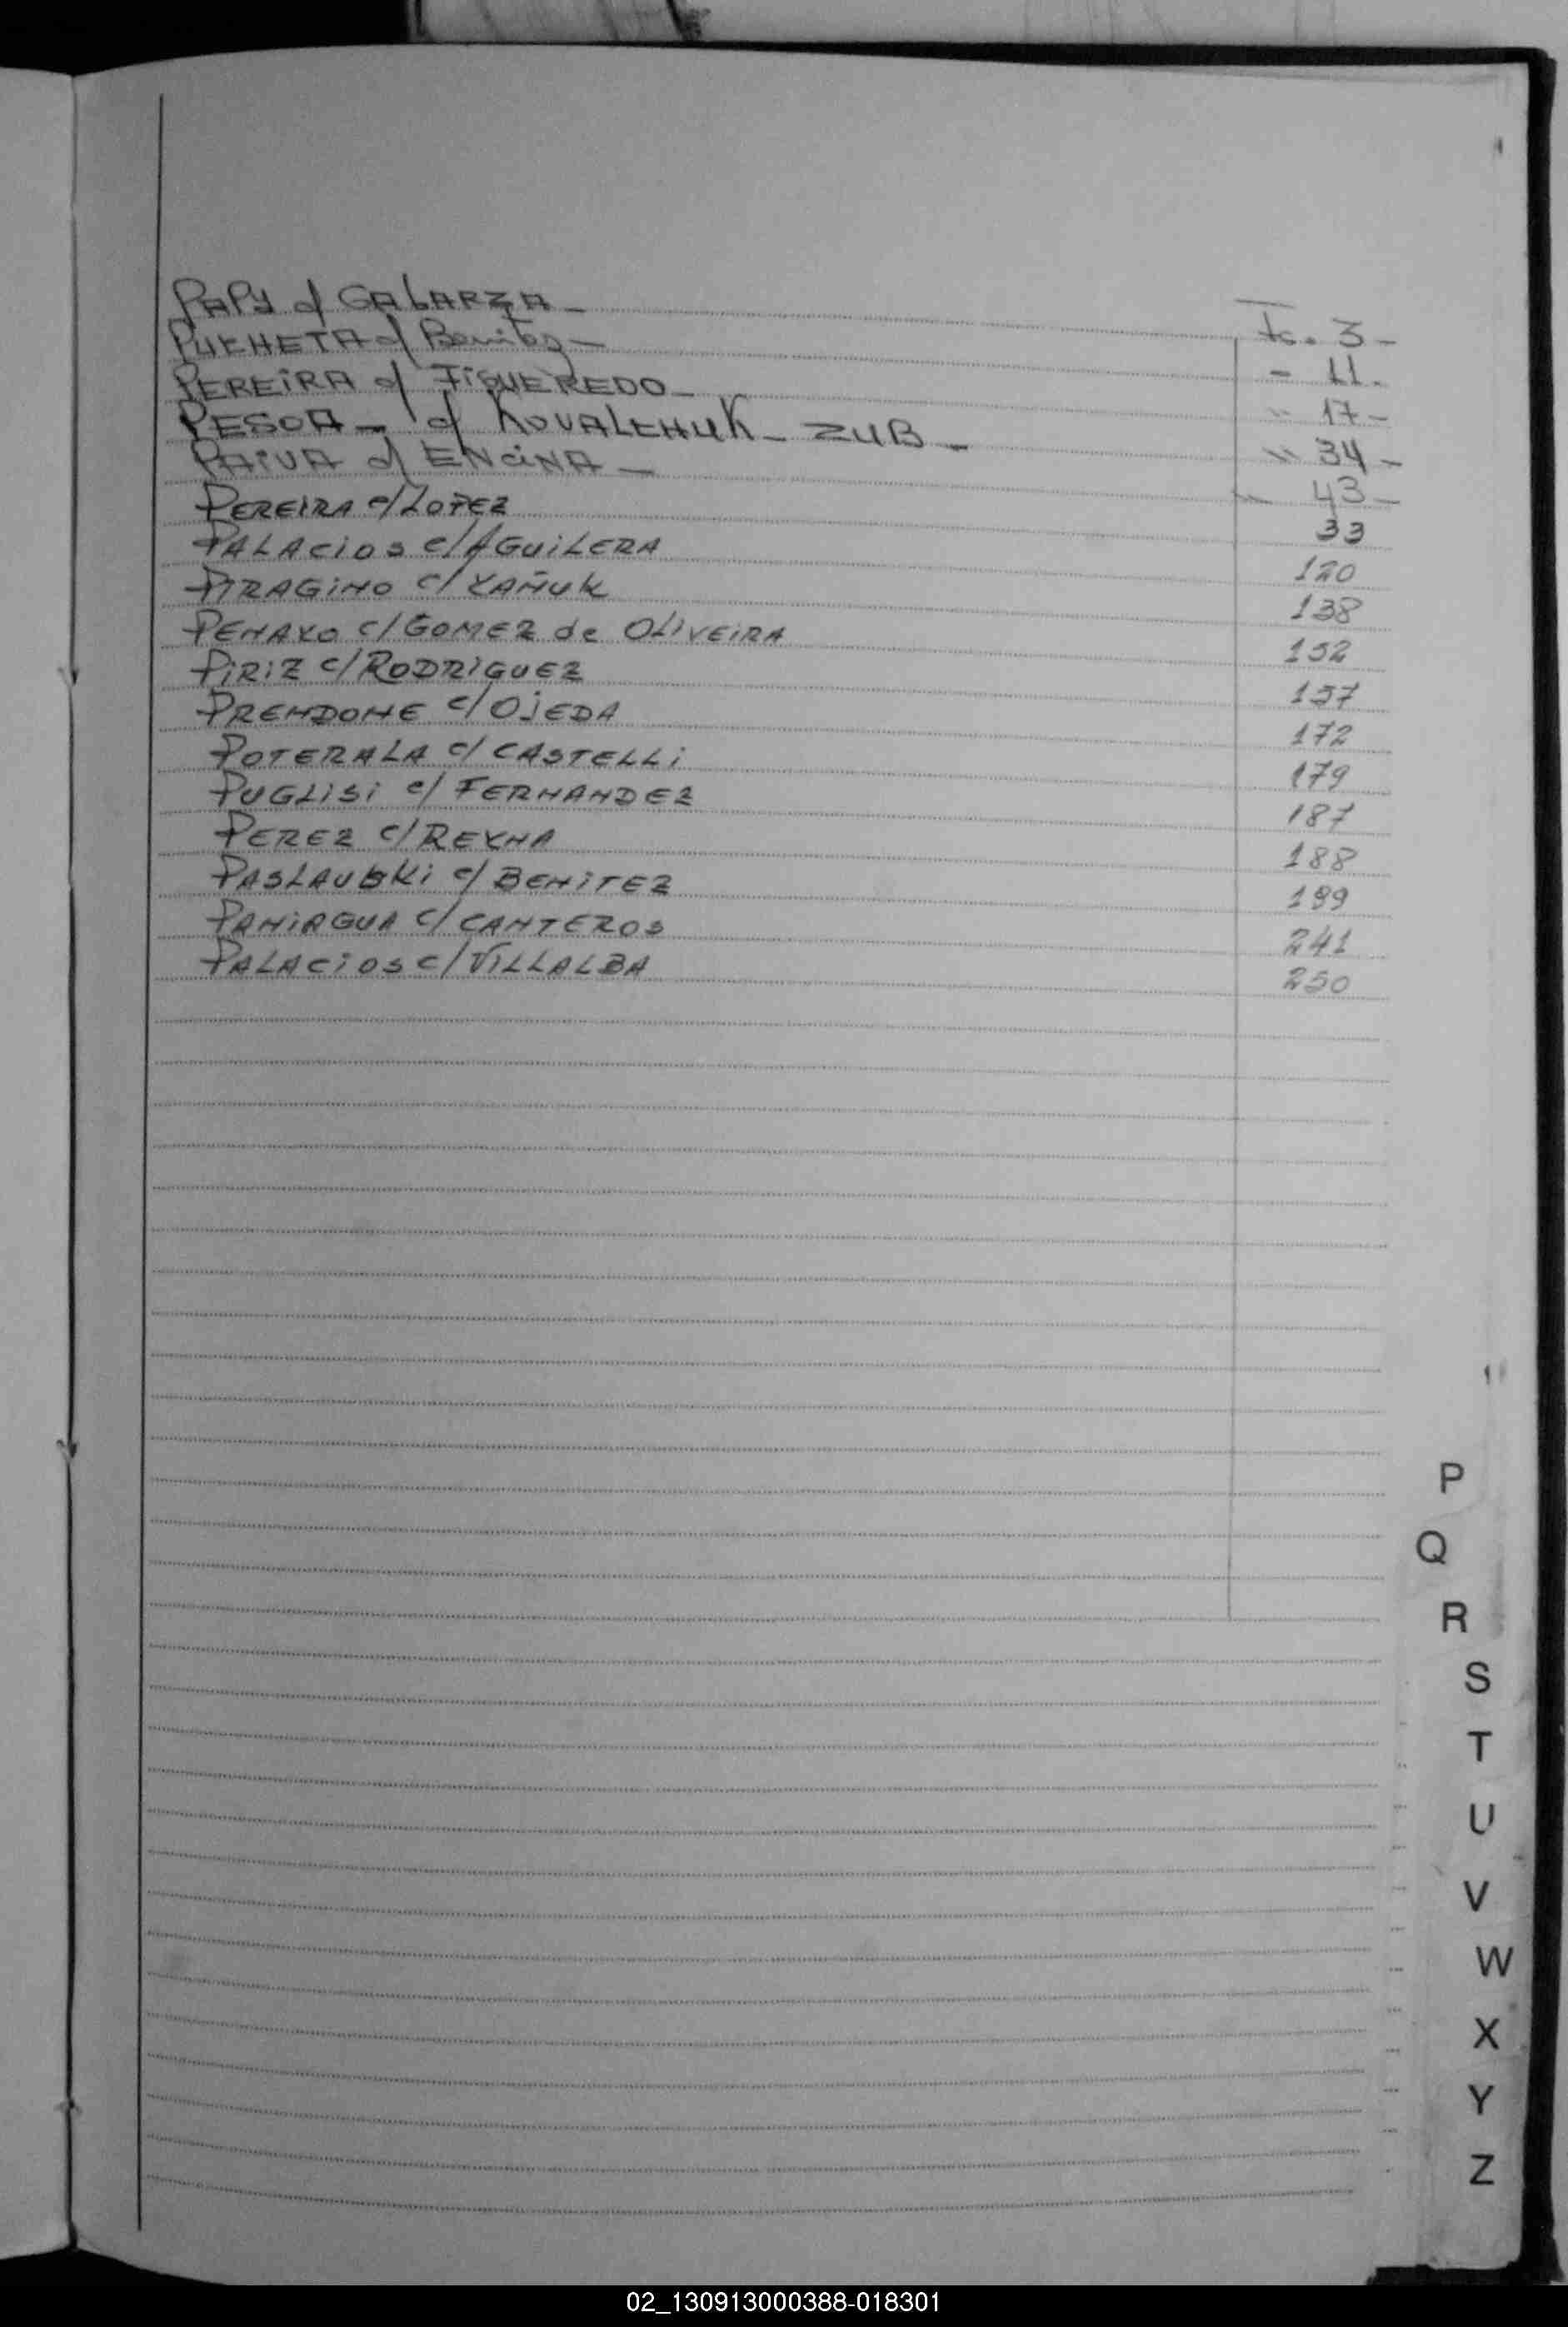 PAPY c/ GALARZA - Fo. 3 -
PUCHETA c/ Benitez - - 11.
PEREIRA c/ FIGUEREDO - " 17 -
PESOA - c/ KOVALCHUK - ZUB - " 34 -
PAIVA c/ ENCINA - " 43 -
PEREIRA c/ LOPEZ 33
PALACIOS c/ AGUILERA 120
PIRAGINO c/ YAÑUK 138
PENAYO c/ GOMEZ de OLIVEIRA 152
PIRIZ c/ RODRIGUEZ 157
PRENDONE c/ OJEDA 172
POTERALA c/ CASTELLI 179
PUGLISI c/ FERNANDEZ 187
PEREZ c/ REYNA 188
PASLAUSKI c/ BENITEZ 199
PANIAGUA c/ CANTEROS 241
PALACIOS c/ VILLALBA 250
P
Q
R
S
T
U
V
W
X
Y
Z
02_130913000388-018301